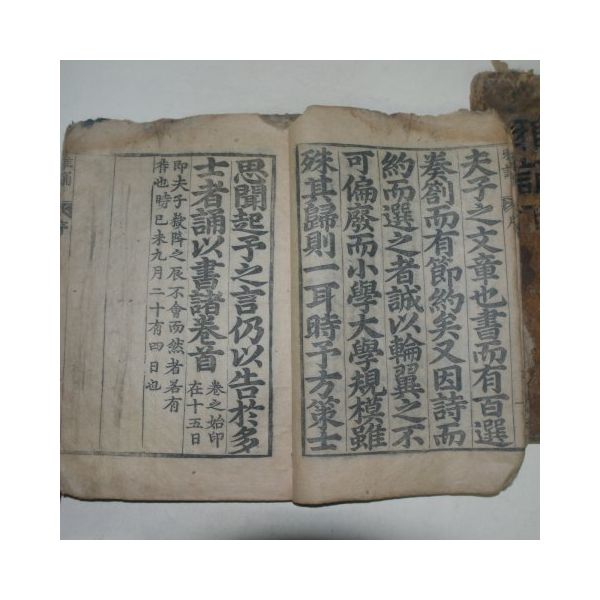 夫子之文章也書而有百選
奏劄而有節約矣又因詩而
約而選之者誠以輪翼之不
可偏廢而小學大學規模雖
殊其歸則一耳時予方策士
思聞起予之言仍以告於多
士者誦以書諸卷首
卷之始印
在十五日
即夫子救降之辰不會而然者若有
待也時己未九月二十有四日也